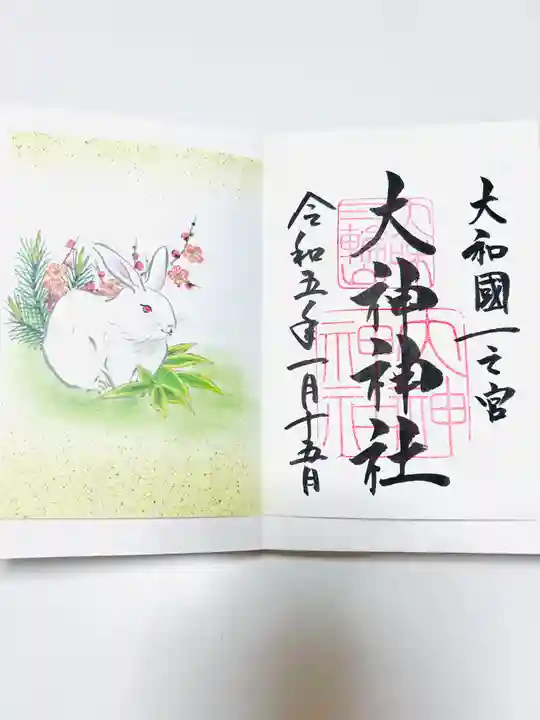 大和國一之宮
大神神社
令和五年一月十五日
三輪山
大神
神社